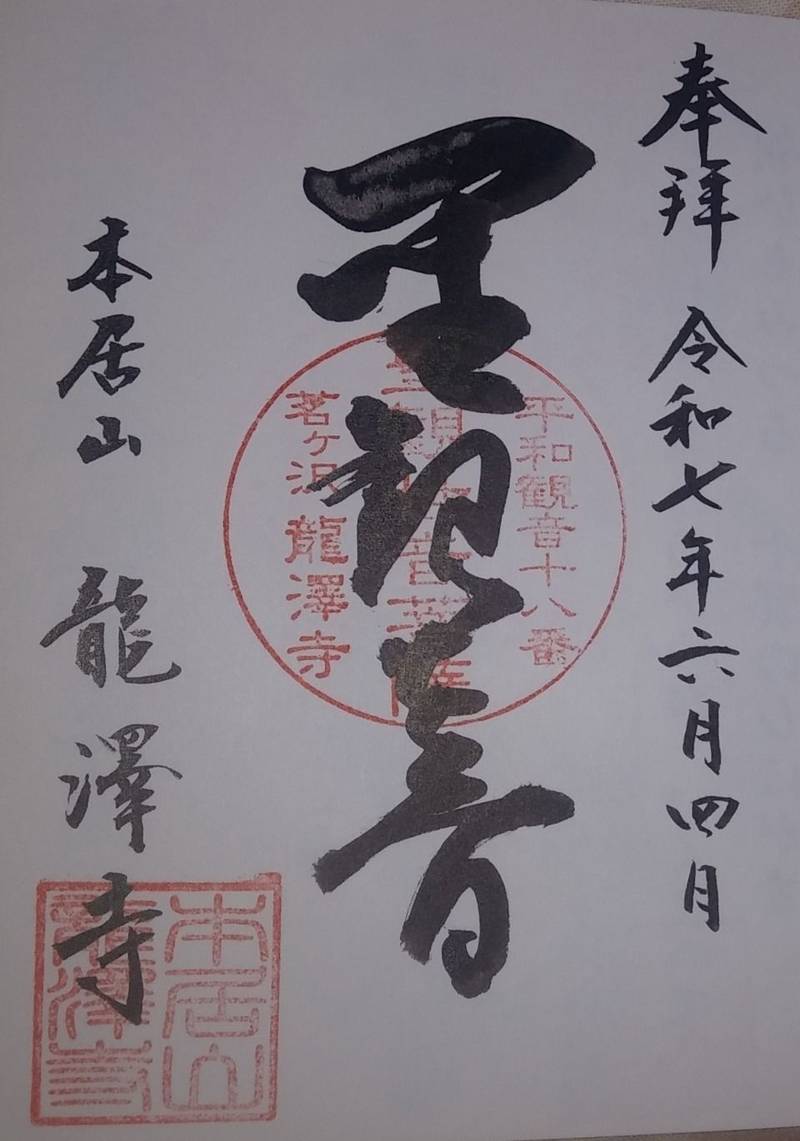 奉拜 令和七年六月四月
聖観音
平和観音十八番
聖観世音菩薩
茗ケ沢 龍澤寺
本居山 龍澤寺
本居山
龍澤寺